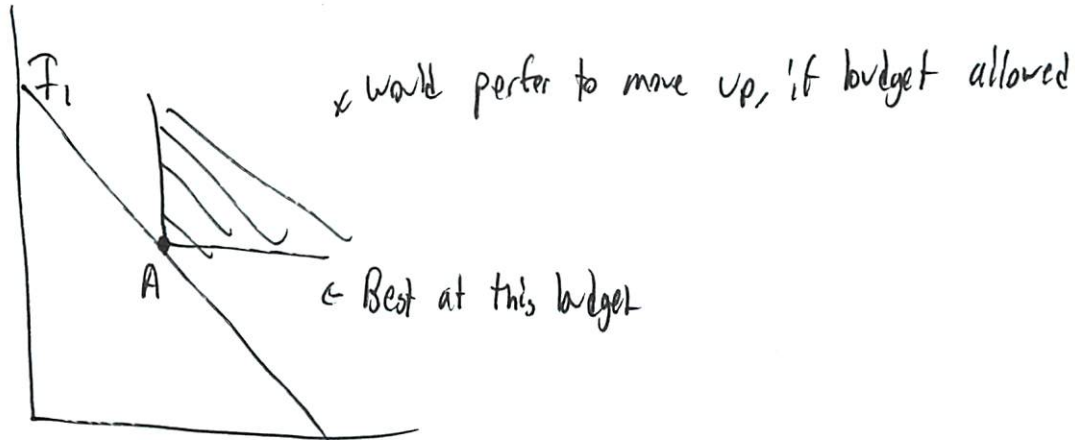 I₁
x would perfer to move up, if budget allowed
A
← Best at this budget